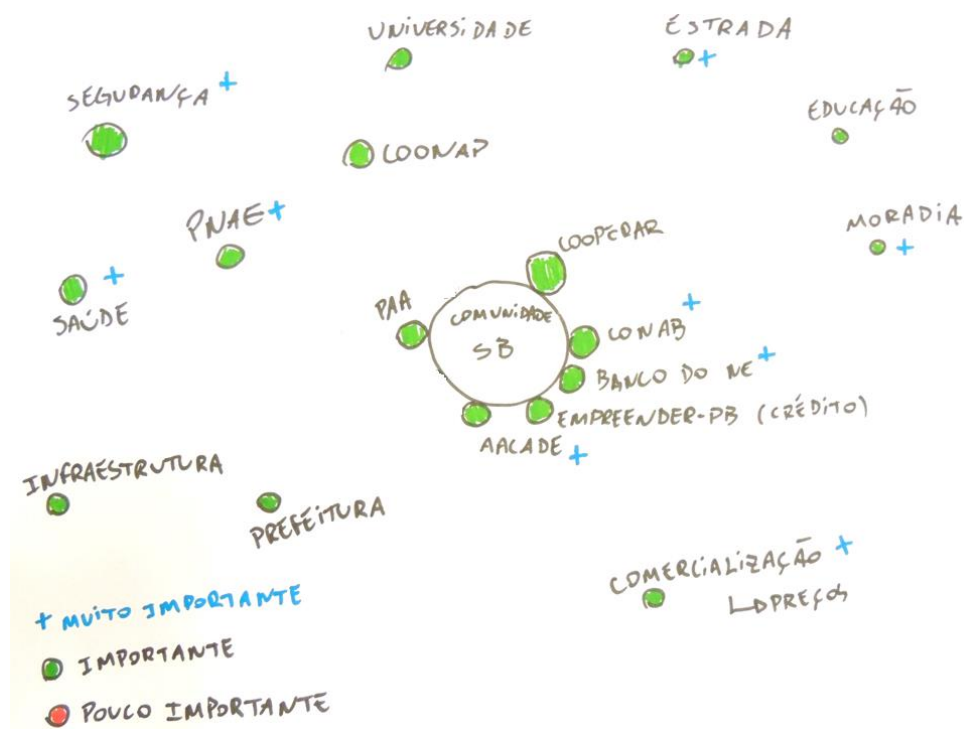 UNIVERSIDADE
ESTRADA +
SEGURANÇA +
EDUCAÇÃO
COONAP
PNAE +
MORADIA +
COOPERAR
SAÚDE +
PAA
COMUNIDADE
SB
CONAB +
BANCO DO NE +
EMPREENDER-PB (CRÉDITO)
AACADE +
INFRAESTRUTURA
PREFEITURA
COMERCIALIZAÇÃO +
PREÇOS
+ MUITO IMPORTANTE
IMPORTANTE
POUCO IMPORTANTE